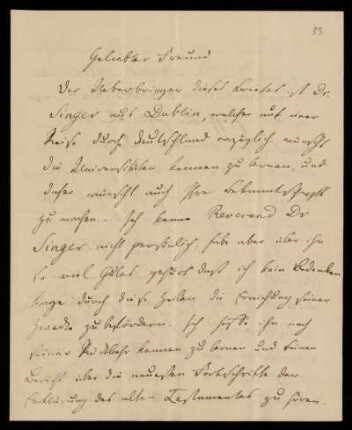 33.
Geliebter Freund
Der Ueberbringer dieses Briefes ist Dr.
Singer aus Dublin, welcher auf einer
Reise durch Deutschland vorzüglich wünscht
die Universitäten kennen zu lernen, und
daher wünscht auch Ihre Bekanntschaft
zu machen. Ich kenne Reverend Dr
Singer nicht persönlich, habe aber über ihn
so viel Gutes gehört daß ich kein Bedenken
trage durch diese Zeilen die Erreichung seiner
Zwecke zu befördern. Ich hoffe ihn nach
seiner Rückkehr kennen zu lernen und einen
Bericht über die neuesten Fortschritte der
Erklärung des alten Testamentes zu hören.